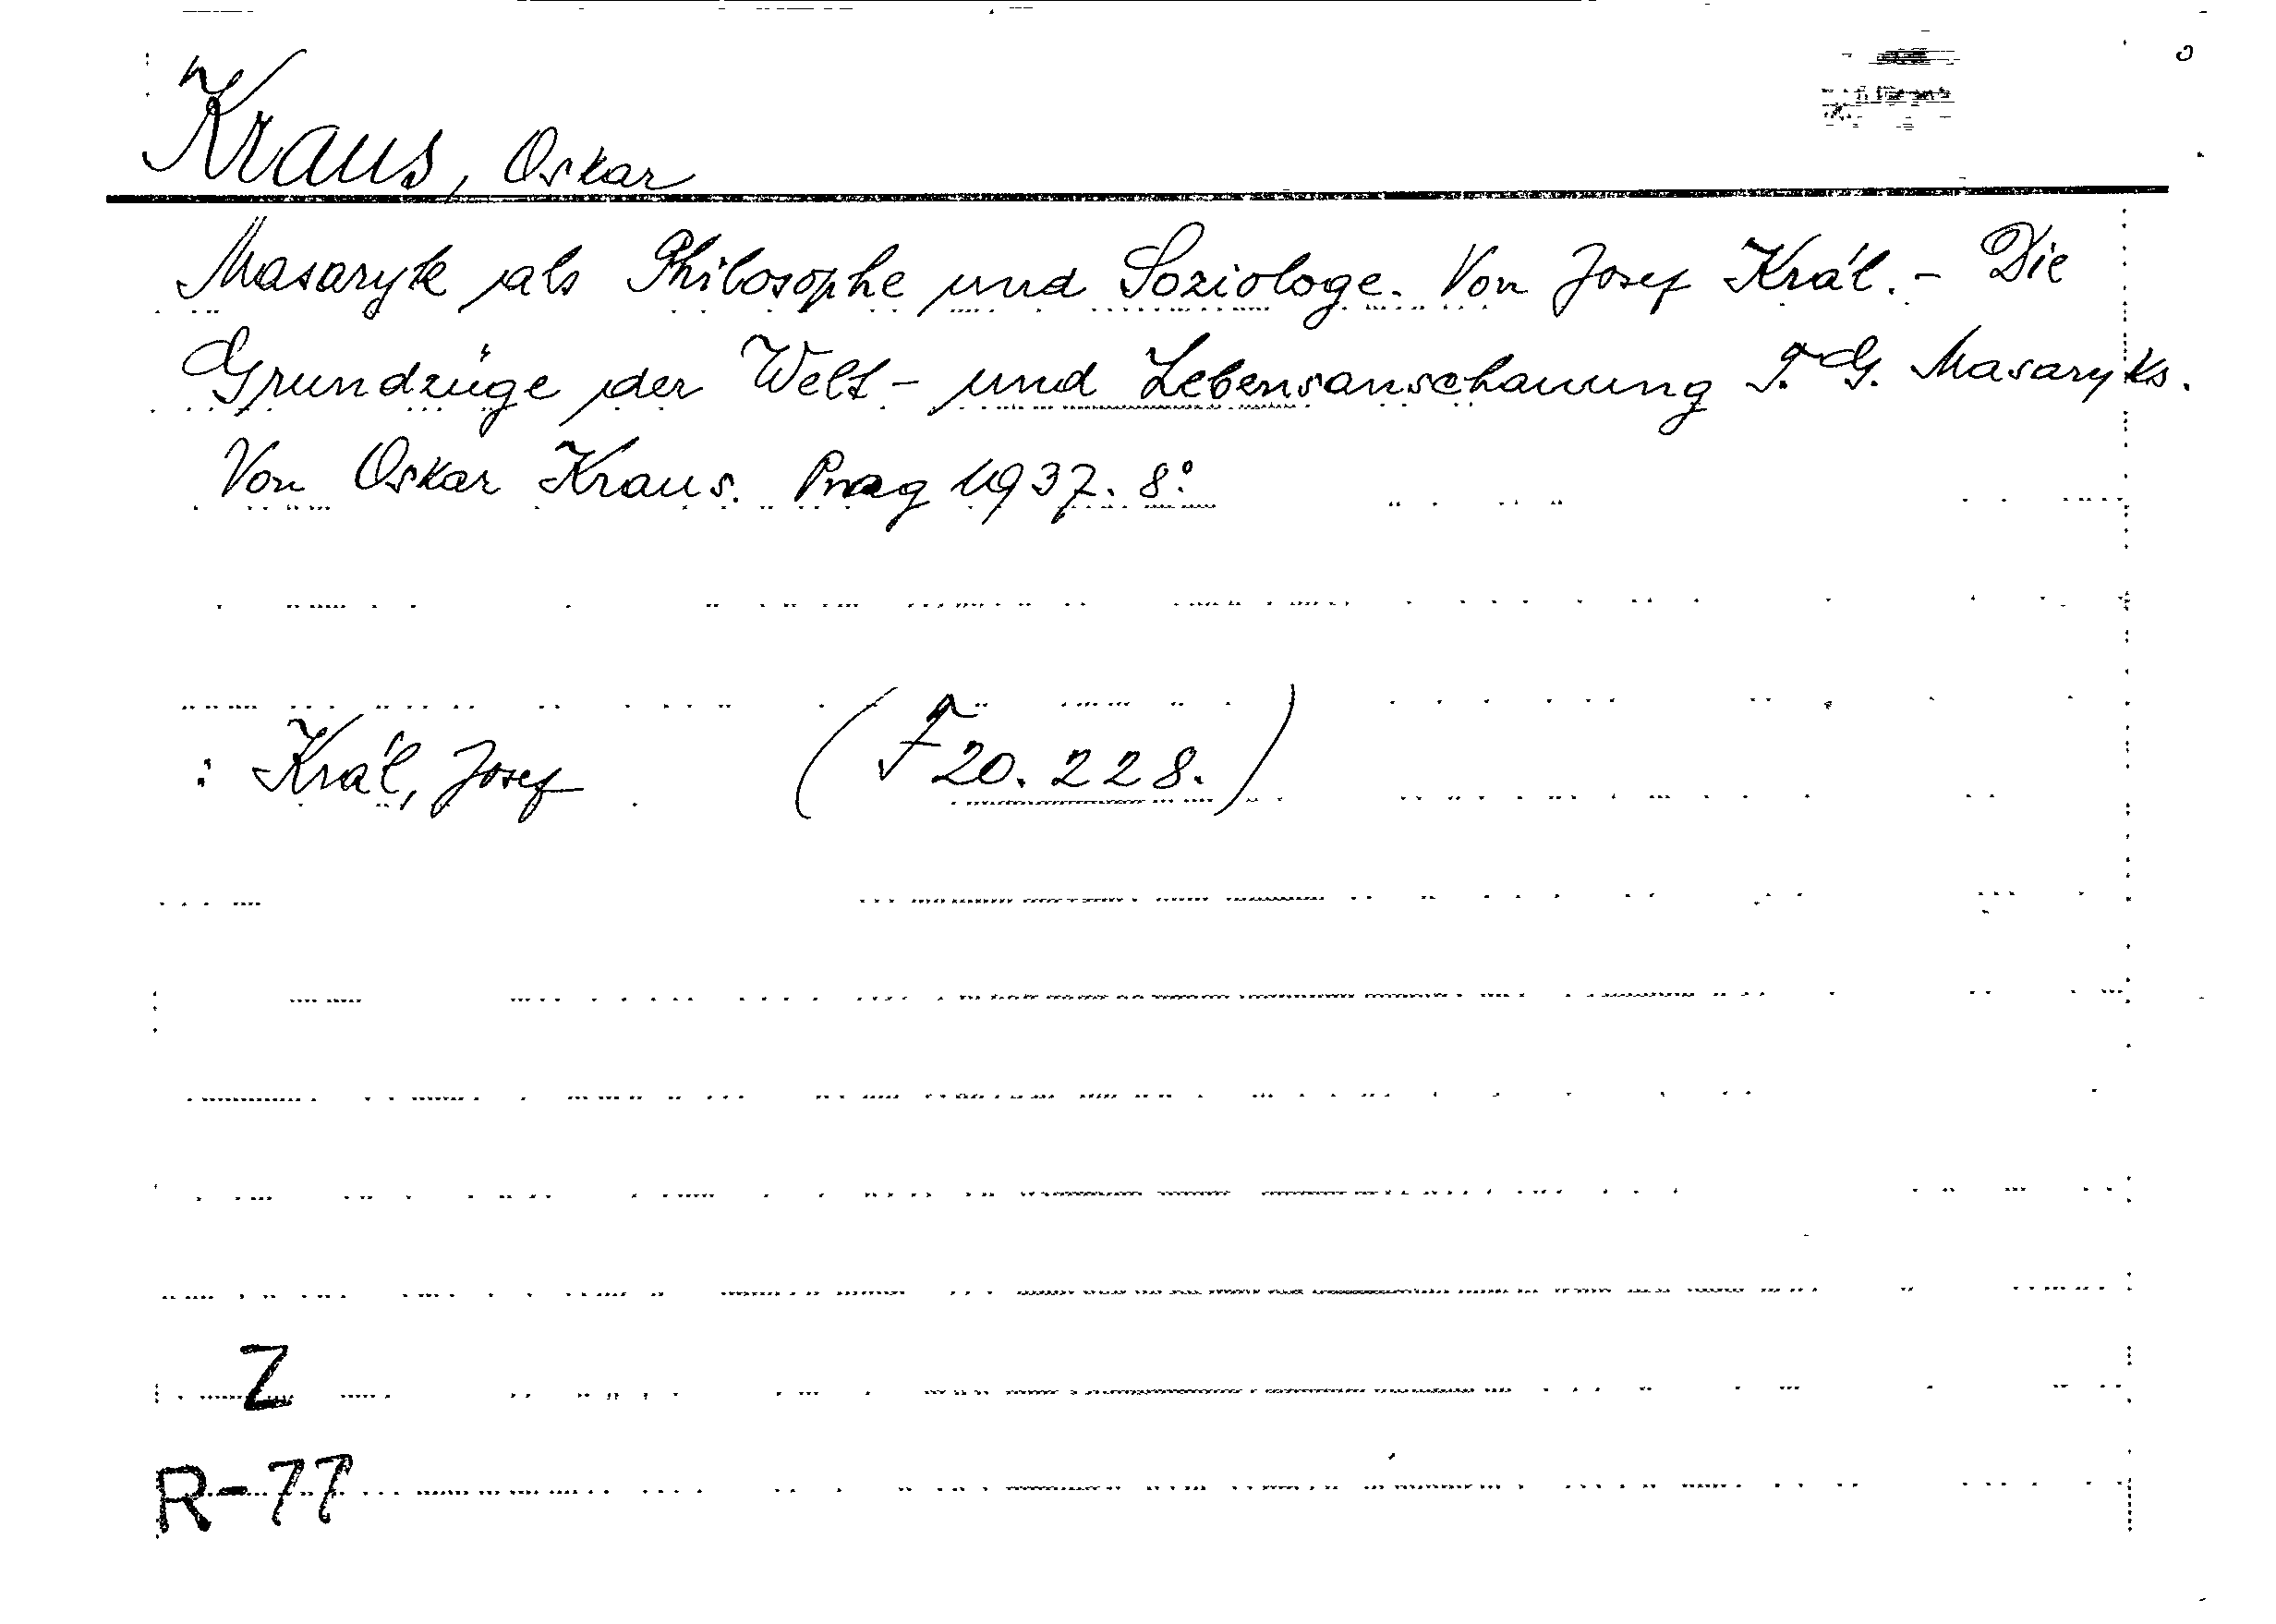 Kraus, Oskar
Masaryk als Philosophe und Soziologe. Von Josef Král. - Die
Grundzüge der Welt- und Lebensanschauung T. G. Masaryks.
Von Oskar Kraus. Prag 1937. 8°
: Král, Josef (F 20.228.)
Z
R-77